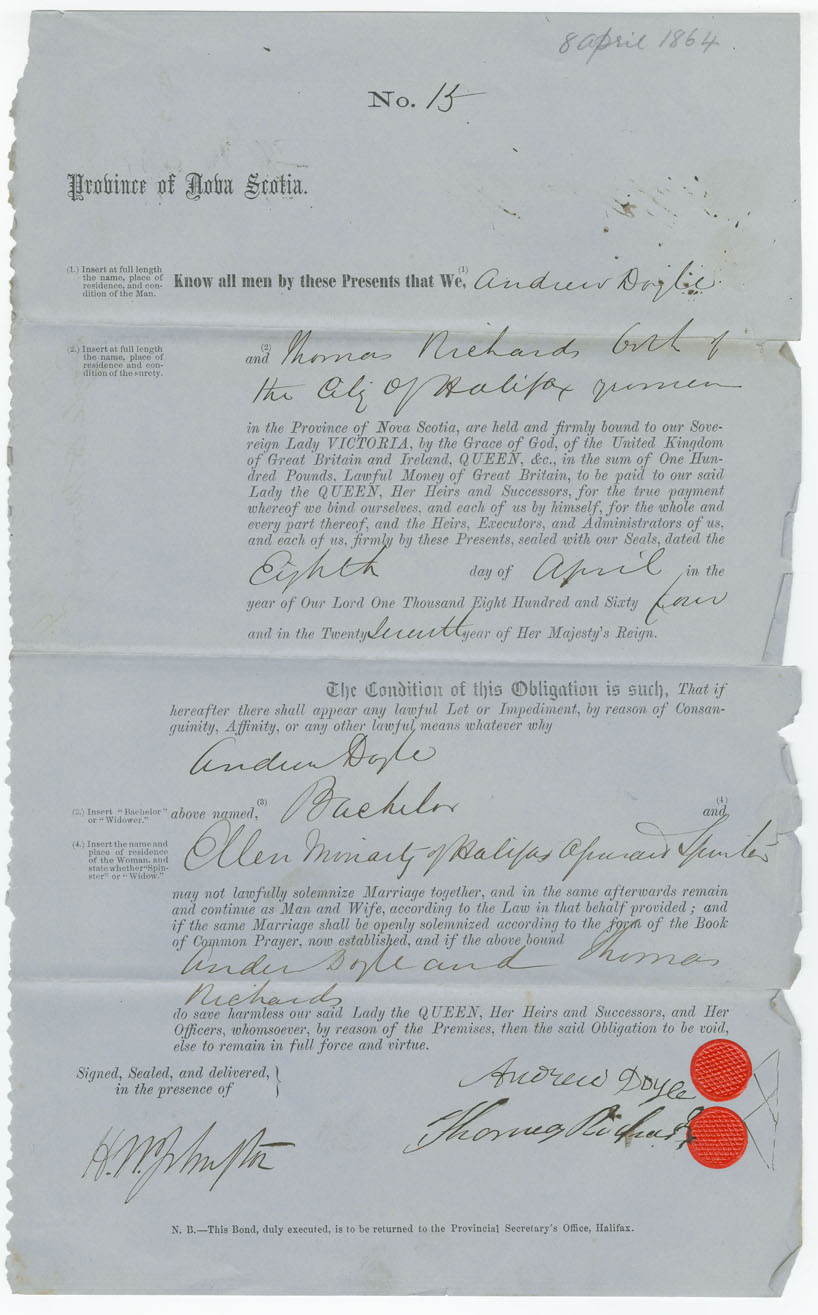 8 april 1864
No. 15
Province of Nova Scotia.
(1.) Insert at full length
the name, place of
residence, and con-
dition of the Man.
Know all men by these Presents that We, (1) Andrew Doyle
(2.) Insert at full length
the name, place of
residence and con-
dition of the surety.
and (2) Thomas Richards both of
the City Of Halifax
in the Province of Nova Scotia, are held and firmly bound to our Sove-
reign Lady VICTORIA, by the Grace of God, of the United Kingdom
of Great Britain and Ireland, QUEEN, &c., in the sum of One Hun-
dred Pounds, Lawful Money of Great Britain, to be paid to our said
Lady the QUEEN, Her Heirs and Successors, for the true payment
whereof we bind ourselves, and each of us by himself, for the whole and
every part thereof, and the Heirs, Executors, and Administrators of us,
and each of us, firmly by these Presents, sealed with our Seals, dated the
Eighth day of April in the
year of Our Lord One Thousand Eight Hundred and Sixty four
and in the Twenty Seventh year of Her Majesty's Reign.
The Condition of this Obligation is such, That if
hereafter there shall appear any lawful Let or Impediment, by reason of Consan-
guinity, Affinity, or any other lawful means whatever why
Andrew Doyle
(3.) Insert "Bachelor"
or "Widower."
above named, (3) Bachelor and (4)
(4.) Insert the name and
place of residence
of the Woman, and
state whether "Spin-
ster" or "Widow."
Ellen Moriarty of Halifax Spinster
may not lawfully solemnize Marriage together, and in the same afterwards remain
and continue as Man and Wife, according to the Law in that behalf provided; and
if the same Marriage shall be openly solemnized according to the form of the Book
of Common Prayer, now established, and if the above bound
Andrew Doyle and Thomas
Richards
do save harmless our said Lady the QUEEN, Her Heirs and Successors, and Her
Officers, whomsoever, by reason of the Premises, then the said Obligation to be void,
else to remain in full force and virtue.
Signed, Sealed, and delivered,
in the presence of
Andrew Doyle
Thomas Richards
H. W. Johnston
N. B.—This Bond, duly executed, is to be returned to the Provincial Secretary's Office, Halifax.